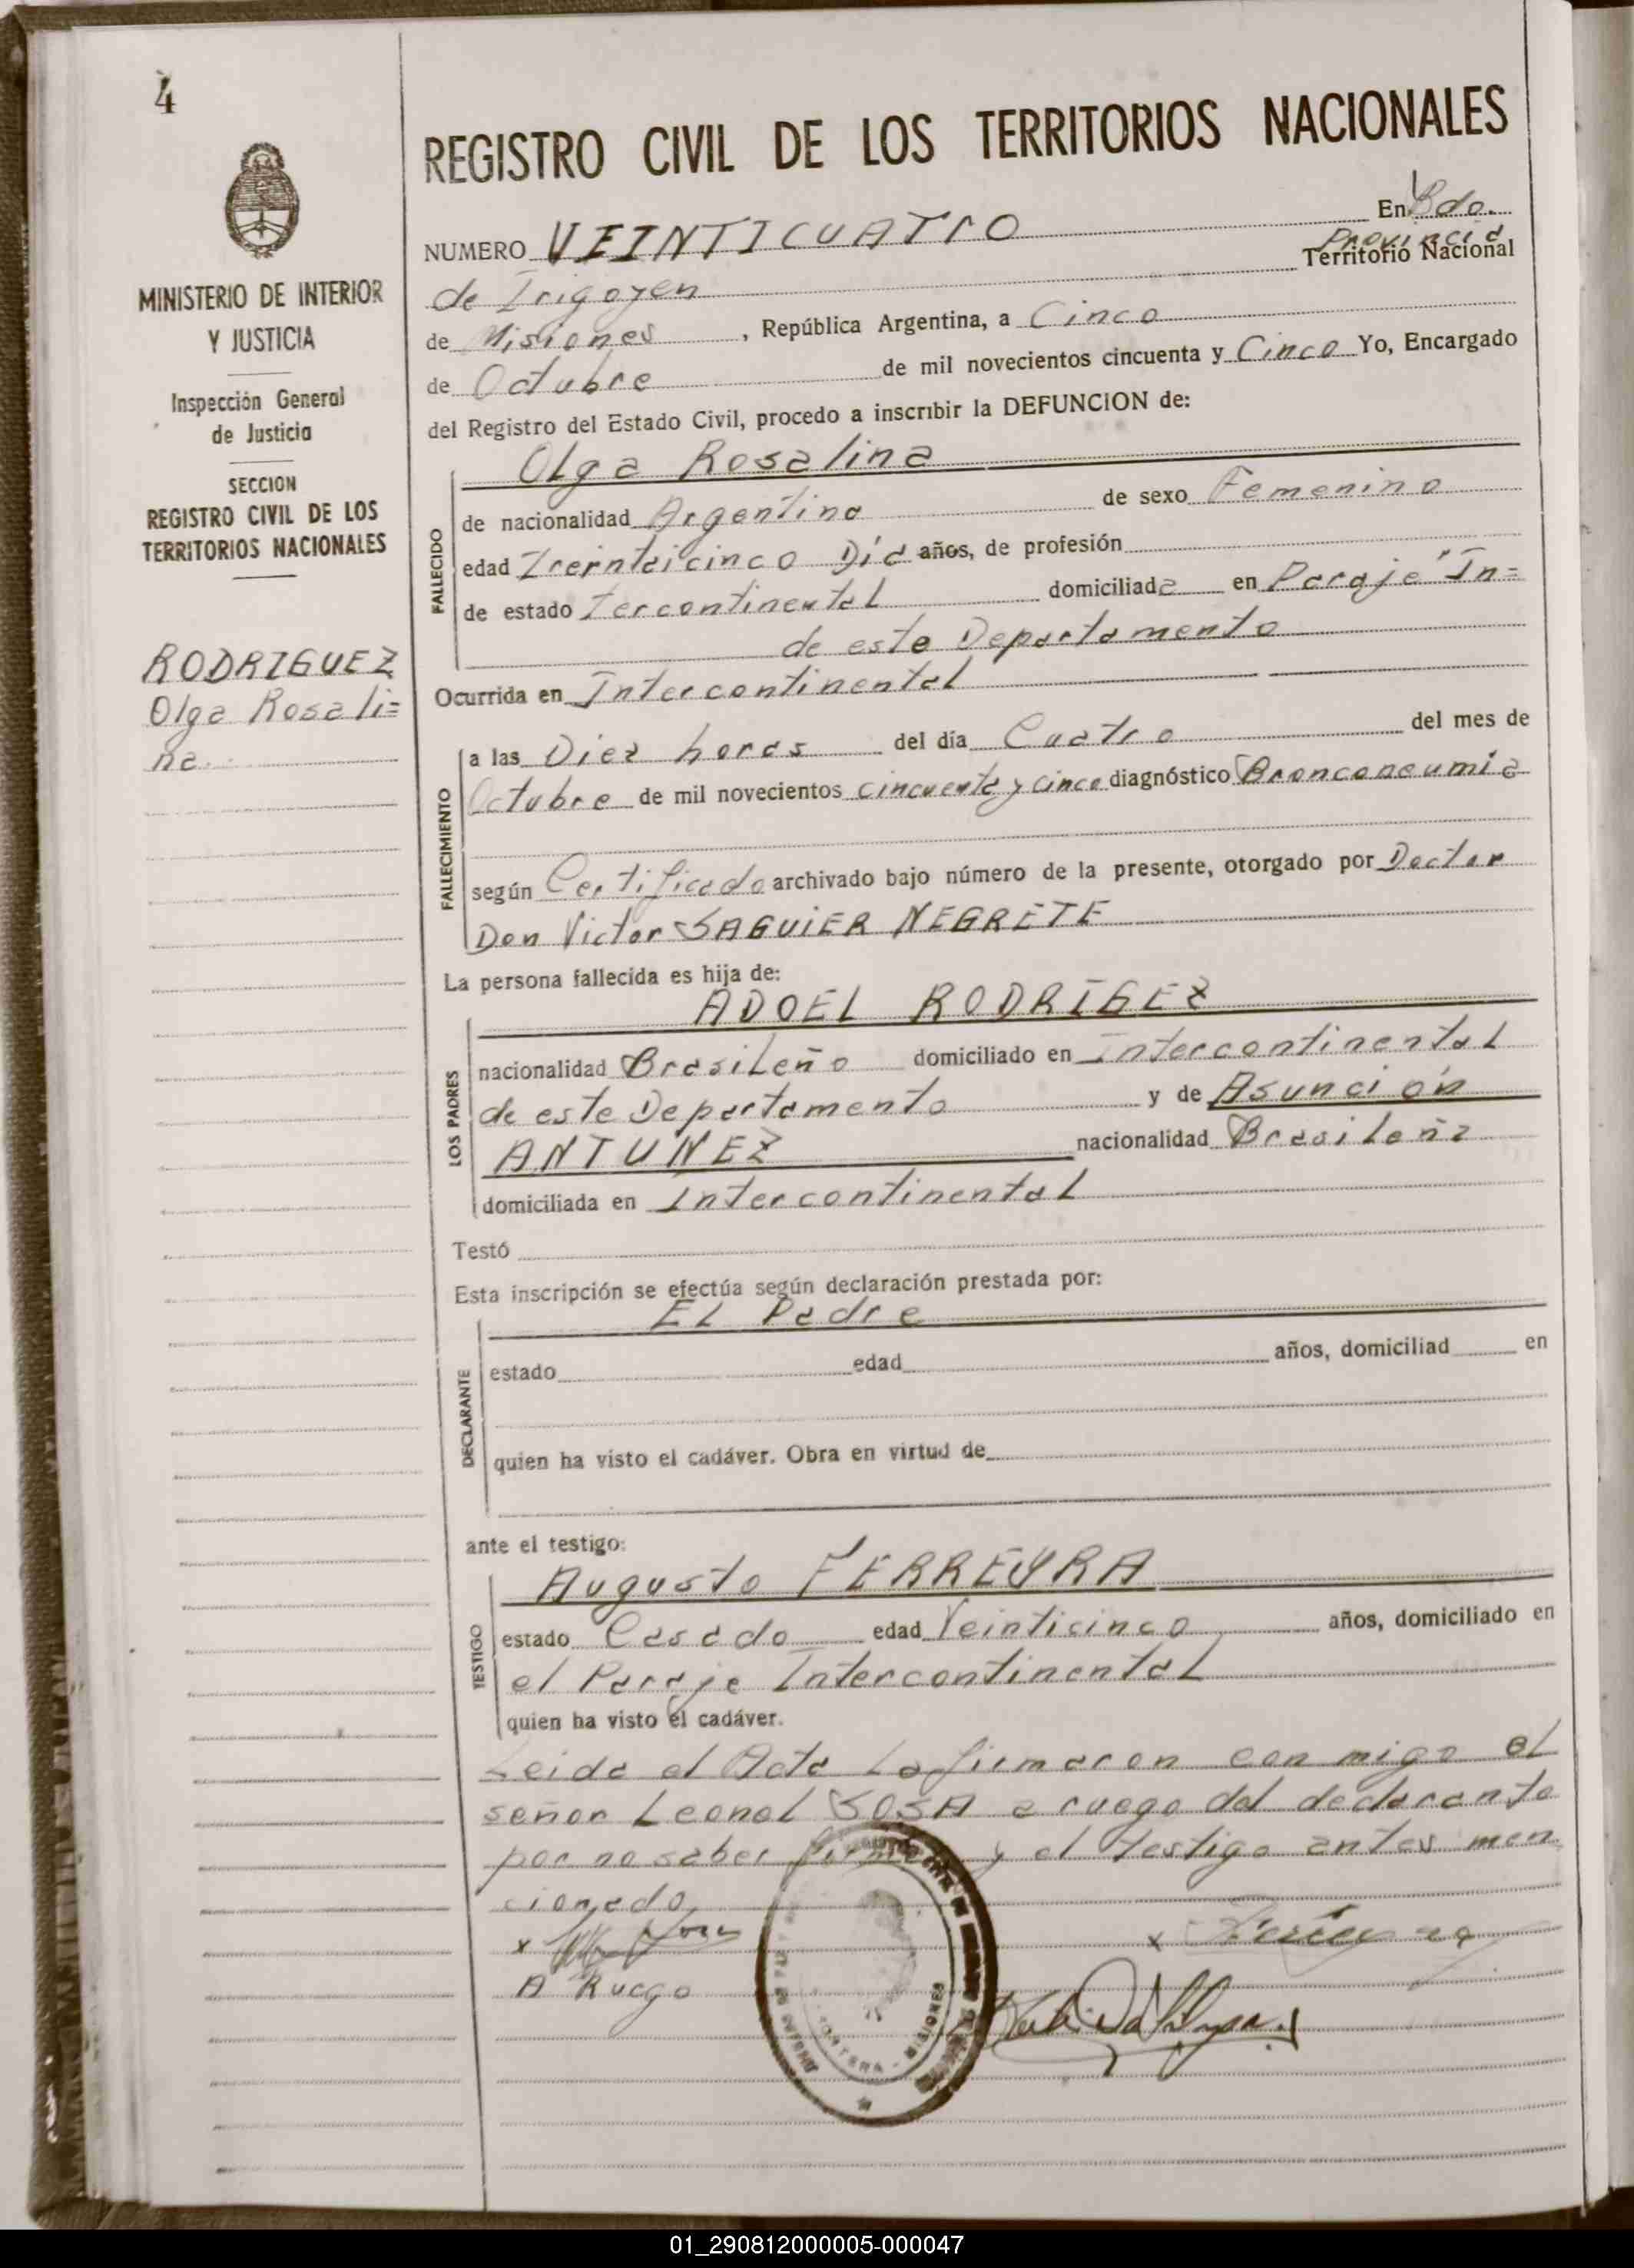 4
MINISTERIO DE INTERIOR
Y JUSTICIA
Inspección General
de Justicia
SECCION
REGISTRO CIVIL DE LOS
TERRITORIOS NACIONALES
RODRIGUEZ
Olga Rosali=
na.
REGISTRO CIVIL DE LOS TERRITORIOS NACIONALES
NUMERO VEINTICUATRO En Bdo.
de Irigoyen Provincia Territorio Nacional
de Misiones, República Argentina, a Cinco
de Octubre de mil novecientos cincuenta y Cinco Yo, Encargado
del Registro del Estado Civil, procedo a inscribir la DEFUNCION de:
FALLECIDO
Olga Rosalina
de nacionalidad Argentina de sexo Femenino
edad Treintaicinco Día años, de profesión
de estado tercontinental domiciliada en Paraje "In=
de este Departamento
Ocurrida en Intercontinental
FALLECIMIENTO
a las Diez horas del día Cuatro del mes de
Octubre de mil novecientos cincuenta y cinco diagnóstico Bronconeumia
según Certificado archivado bajo número de la presente, otorgado por Doctor
Don Victor SAGUIER NEGRETE
La persona fallecida es hija de:
LOS PADRES
ADOEL RODRIGEZ
nacionalidad Brasileño domiciliado en Intercontinental
de este Departamento y de Asunción
ANTUNEZ nacionalidad Brasileña
domiciliada en Intercontinental
Testó
Esta inscripción se efectúa según declaración prestada por:
DECLARANTE
EL Padre
estado edad años, domiciliad en
quien ha visto el cadáver. Obra en virtud de
ante el testigo:
TESTIGO
Augusto FERREYRA
estado Casado edad Veinticinco años, domiciliado en
el Paraje Intercontinental
quien ha visto el cadáver.
Leida el Acta La firmaron con migo el
señor Leonel SOSA a ruego del declarante
por no saber firmar y el testigo antes men
cionado
x
A Ruego
x
MISIONES
01_290812000005-000047